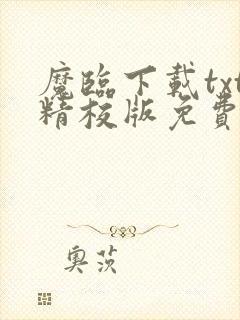 魔臨下載txt
精校版免費
奧茨